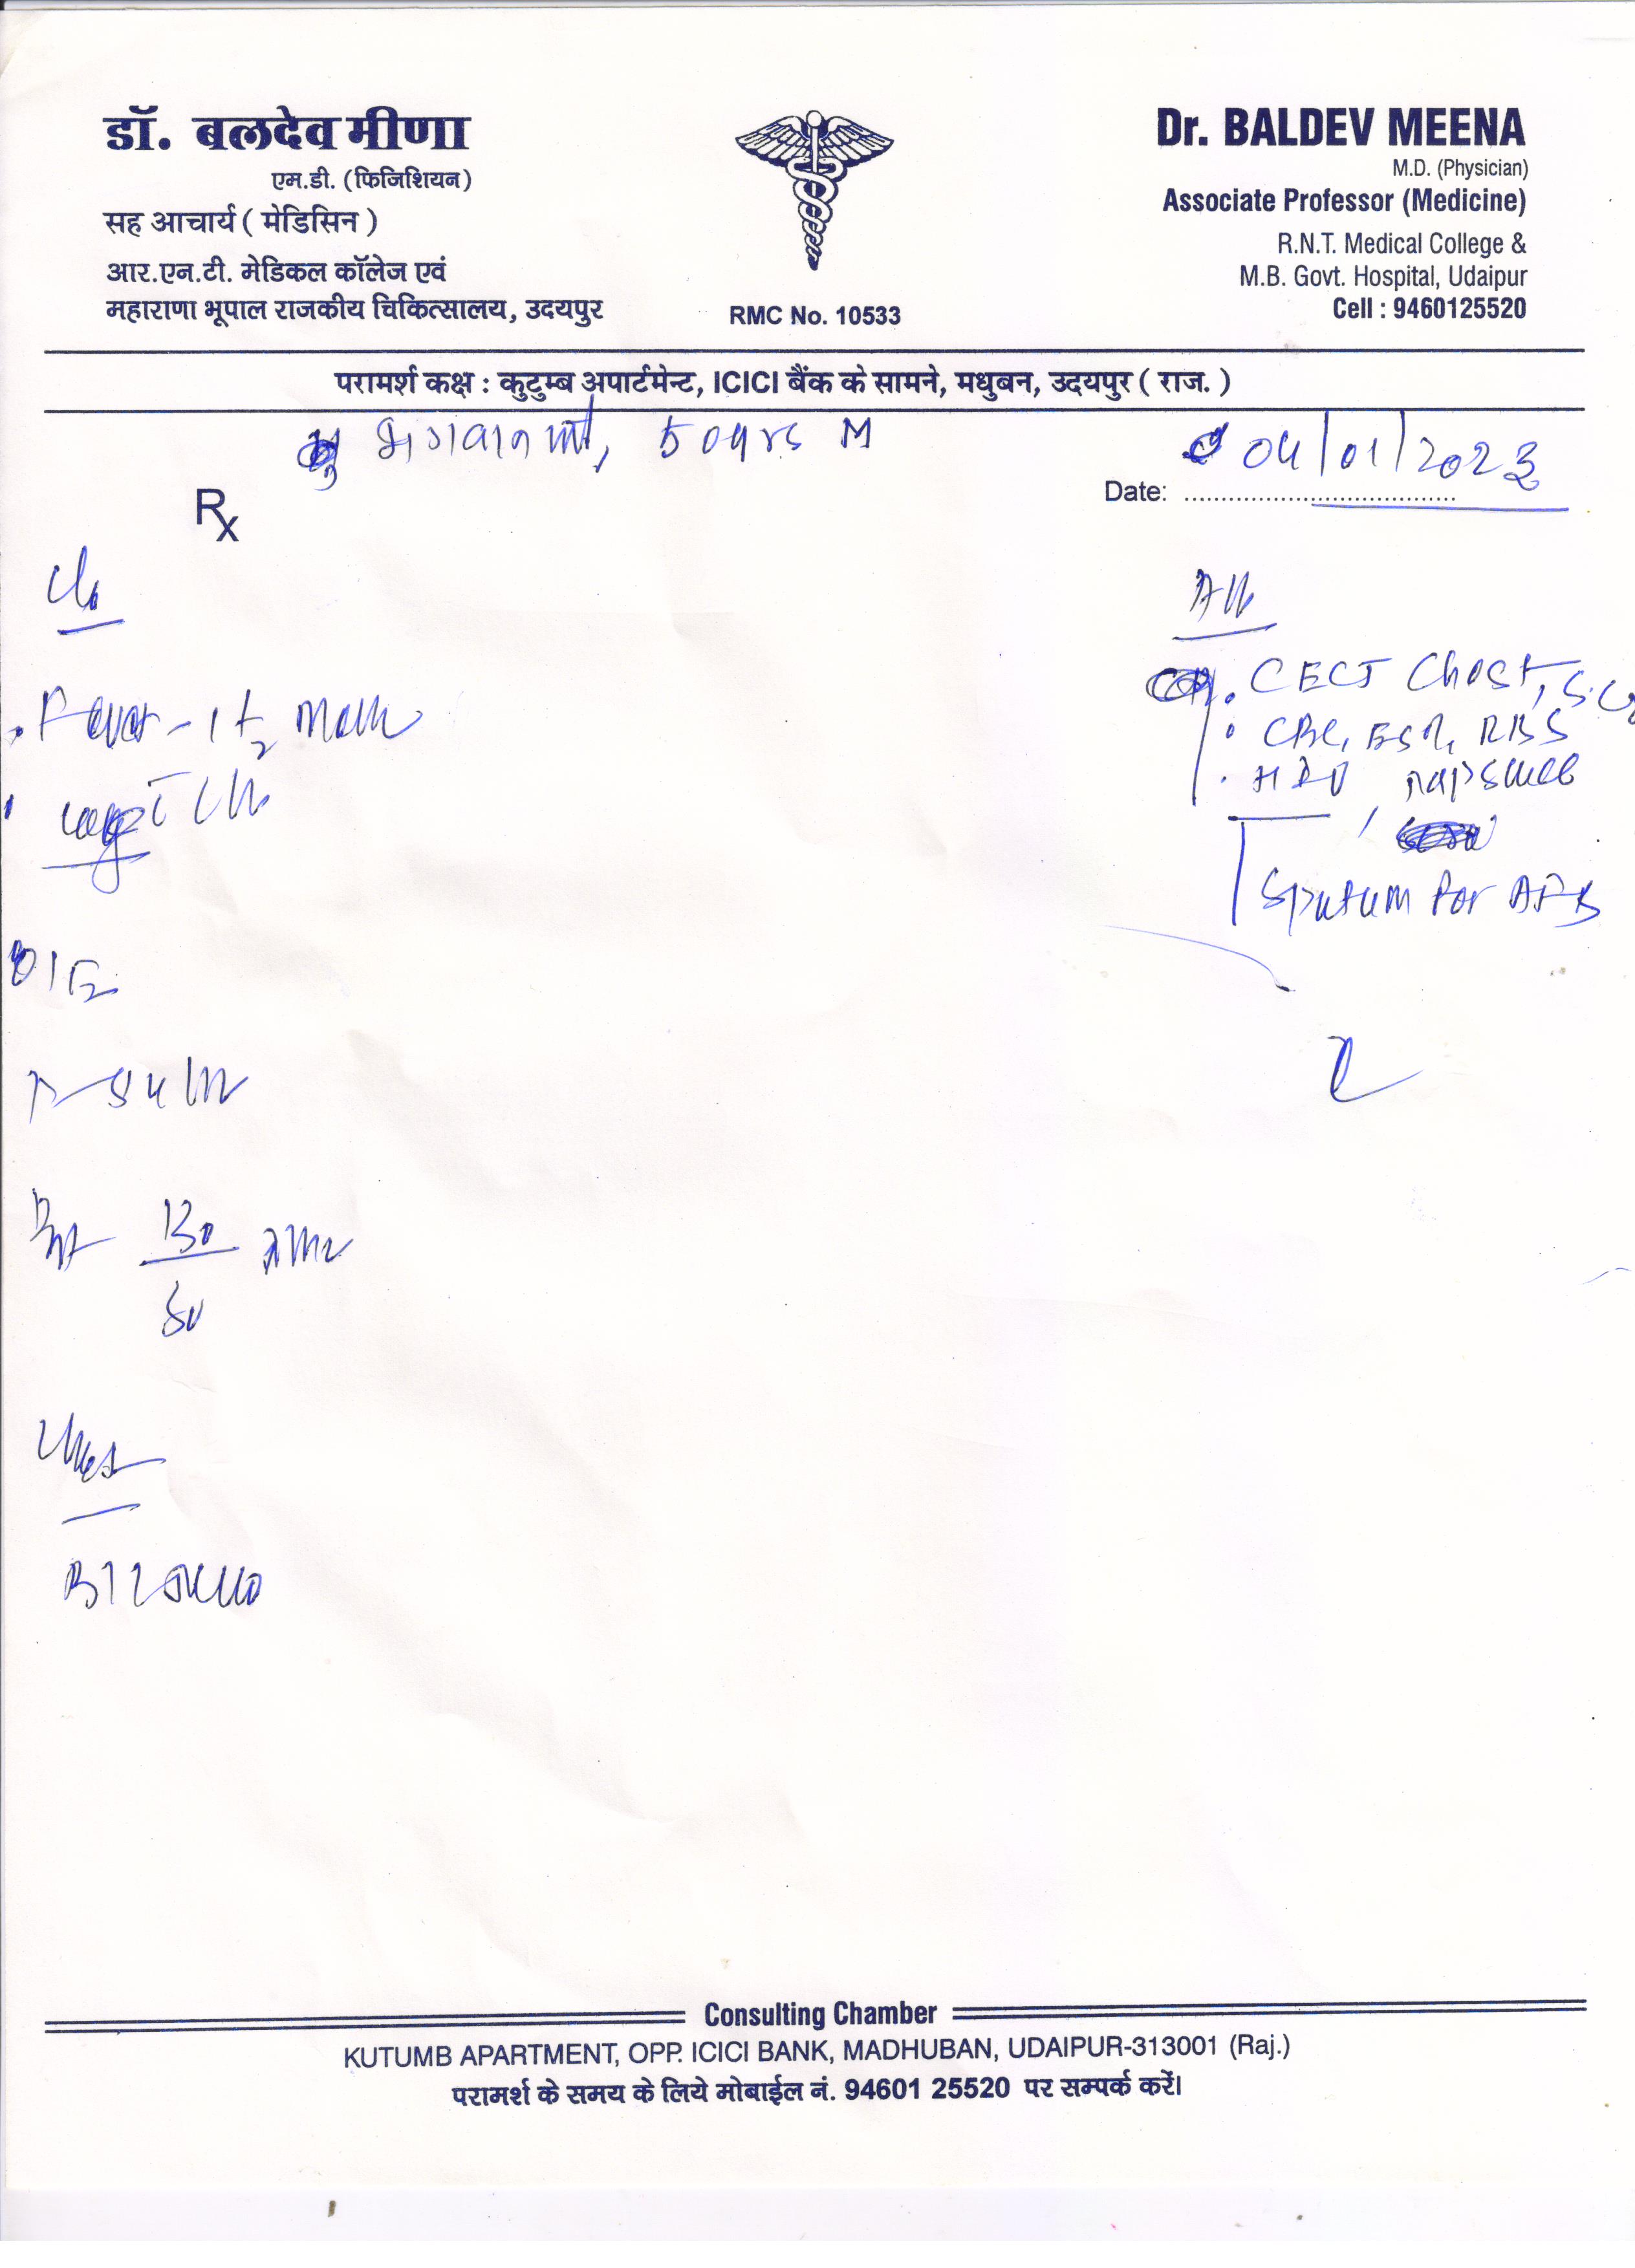 डॉ. बलदेव मीणा
एम.डी. (फिजिशियन)
सह आचार्य ( मेडिसिन )
आर.एन.टी. मेडिकल कॉलेज एवं
महाराणा भूपाल राजकीय चिकित्सालय, उदयपुर
RMC No. 10533
Dr. BALDEV MEENA
M.D. (Physician)
Associate Professor (Medicine)
R.N.T. Medical College &
M.B. Govt. Hospital, Udaipur
Cell : 9460125520
परामर्श कक्ष : कुटुम्ब अपार्टमेन्ट, ICICI बैंक के सामने, मधुबन, उदयपुर ( राज. )
50 yrs M
Date: 04/01/2023
Rx
C/o
Fever -
O/E
130
80
Chest
CECT Chest,
CBC, ESR, RBS
HIV
Sputum for AFB
Consulting Chamber
KUTUMB APARTMENT, OPP. ICICI BANK, MADHUBAN, UDAIPUR-313001 (Raj.)
परामर्श के समय के लिये मोबाईल नं. 94601 25520 पर सम्पर्क करें।